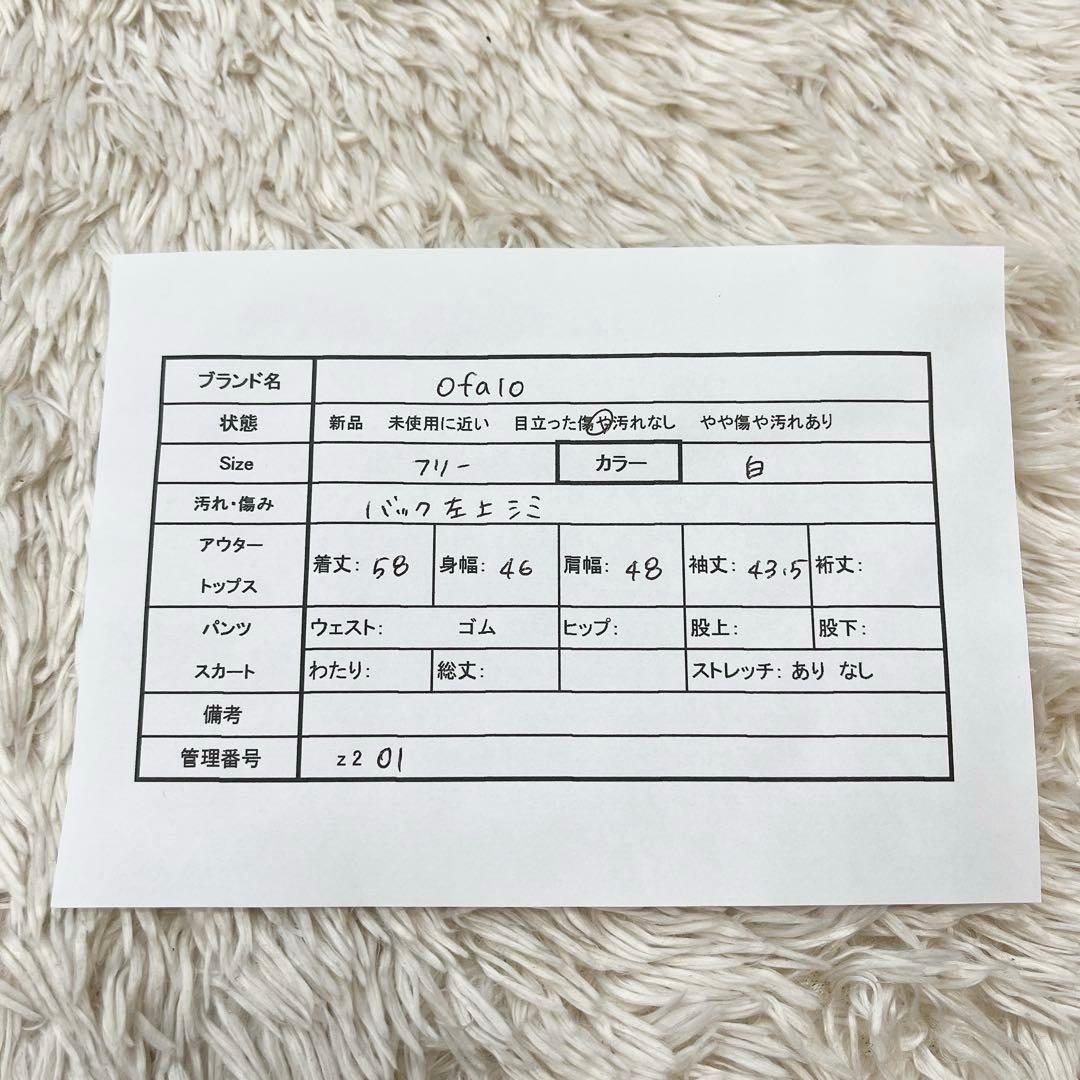 ブランド名 ofalo
状態 新品 未使用に近い 目立った傷や汚れなし やや傷や汚れあり
Size フリー カラー 白
汚れ・傷み バック左上シミ
アウター
トップス
着丈: 58 身幅: 46 肩幅: 48 袖丈: 43.5 裄丈:
パンツ ウェスト: ゴム ヒップ: 股上: 股下:
スカート わたり: 総丈: ストレッチ: あり なし
備考
管理番号 z2 01